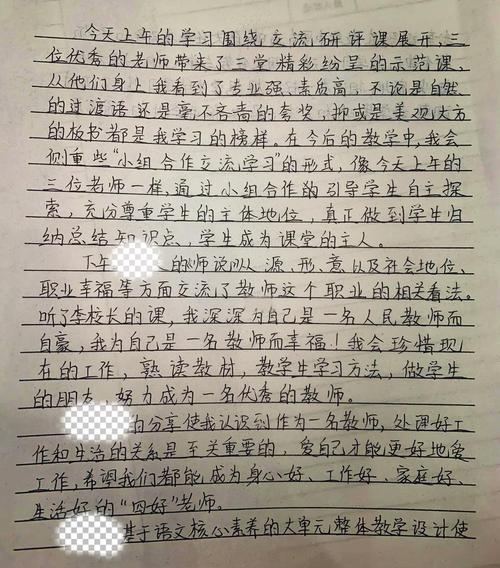 今天上午的学习围绕交流研评课展开,三
位优秀的老师带来了三堂精彩纷呈的示范课,
从他们身上我看到了专业强、素质高,不论是自然
的过渡语还是毫不吝啬的夸奖,抑或是美观大方
的板书都是我学习的榜样。在今后的教学中,我会
侧重些“小组合作交流学习”的形式,像今天上午的
三位老师一样,通过小组合作的引导学生自主探
索,充分尊重学生的主体地位,真正做到学生归
纳总结知识点,学生成为课堂的主人。
下午 人的师说从源、形、意以及社会地位、
职业幸福等方面交流了教师这个职业的相关看法。
听了李校长的课,我深深为自己是一名人民教师而
自豪,我为自己是一名教师而幸福!我会珍惜现
在的工作,熟读教材,教学生学习方法,做学生
的朋友,努力成为一名优秀的教师。
的分享使我认识到作为一名教师,处理好工
作和生活的关系是至关重要的,爱自己才能更好地爱
工作,希望我们都能成为身心好、工作好、家庭好、
生活好的“四好”老师。
基于语文核心素养的大单元整体教学设计使